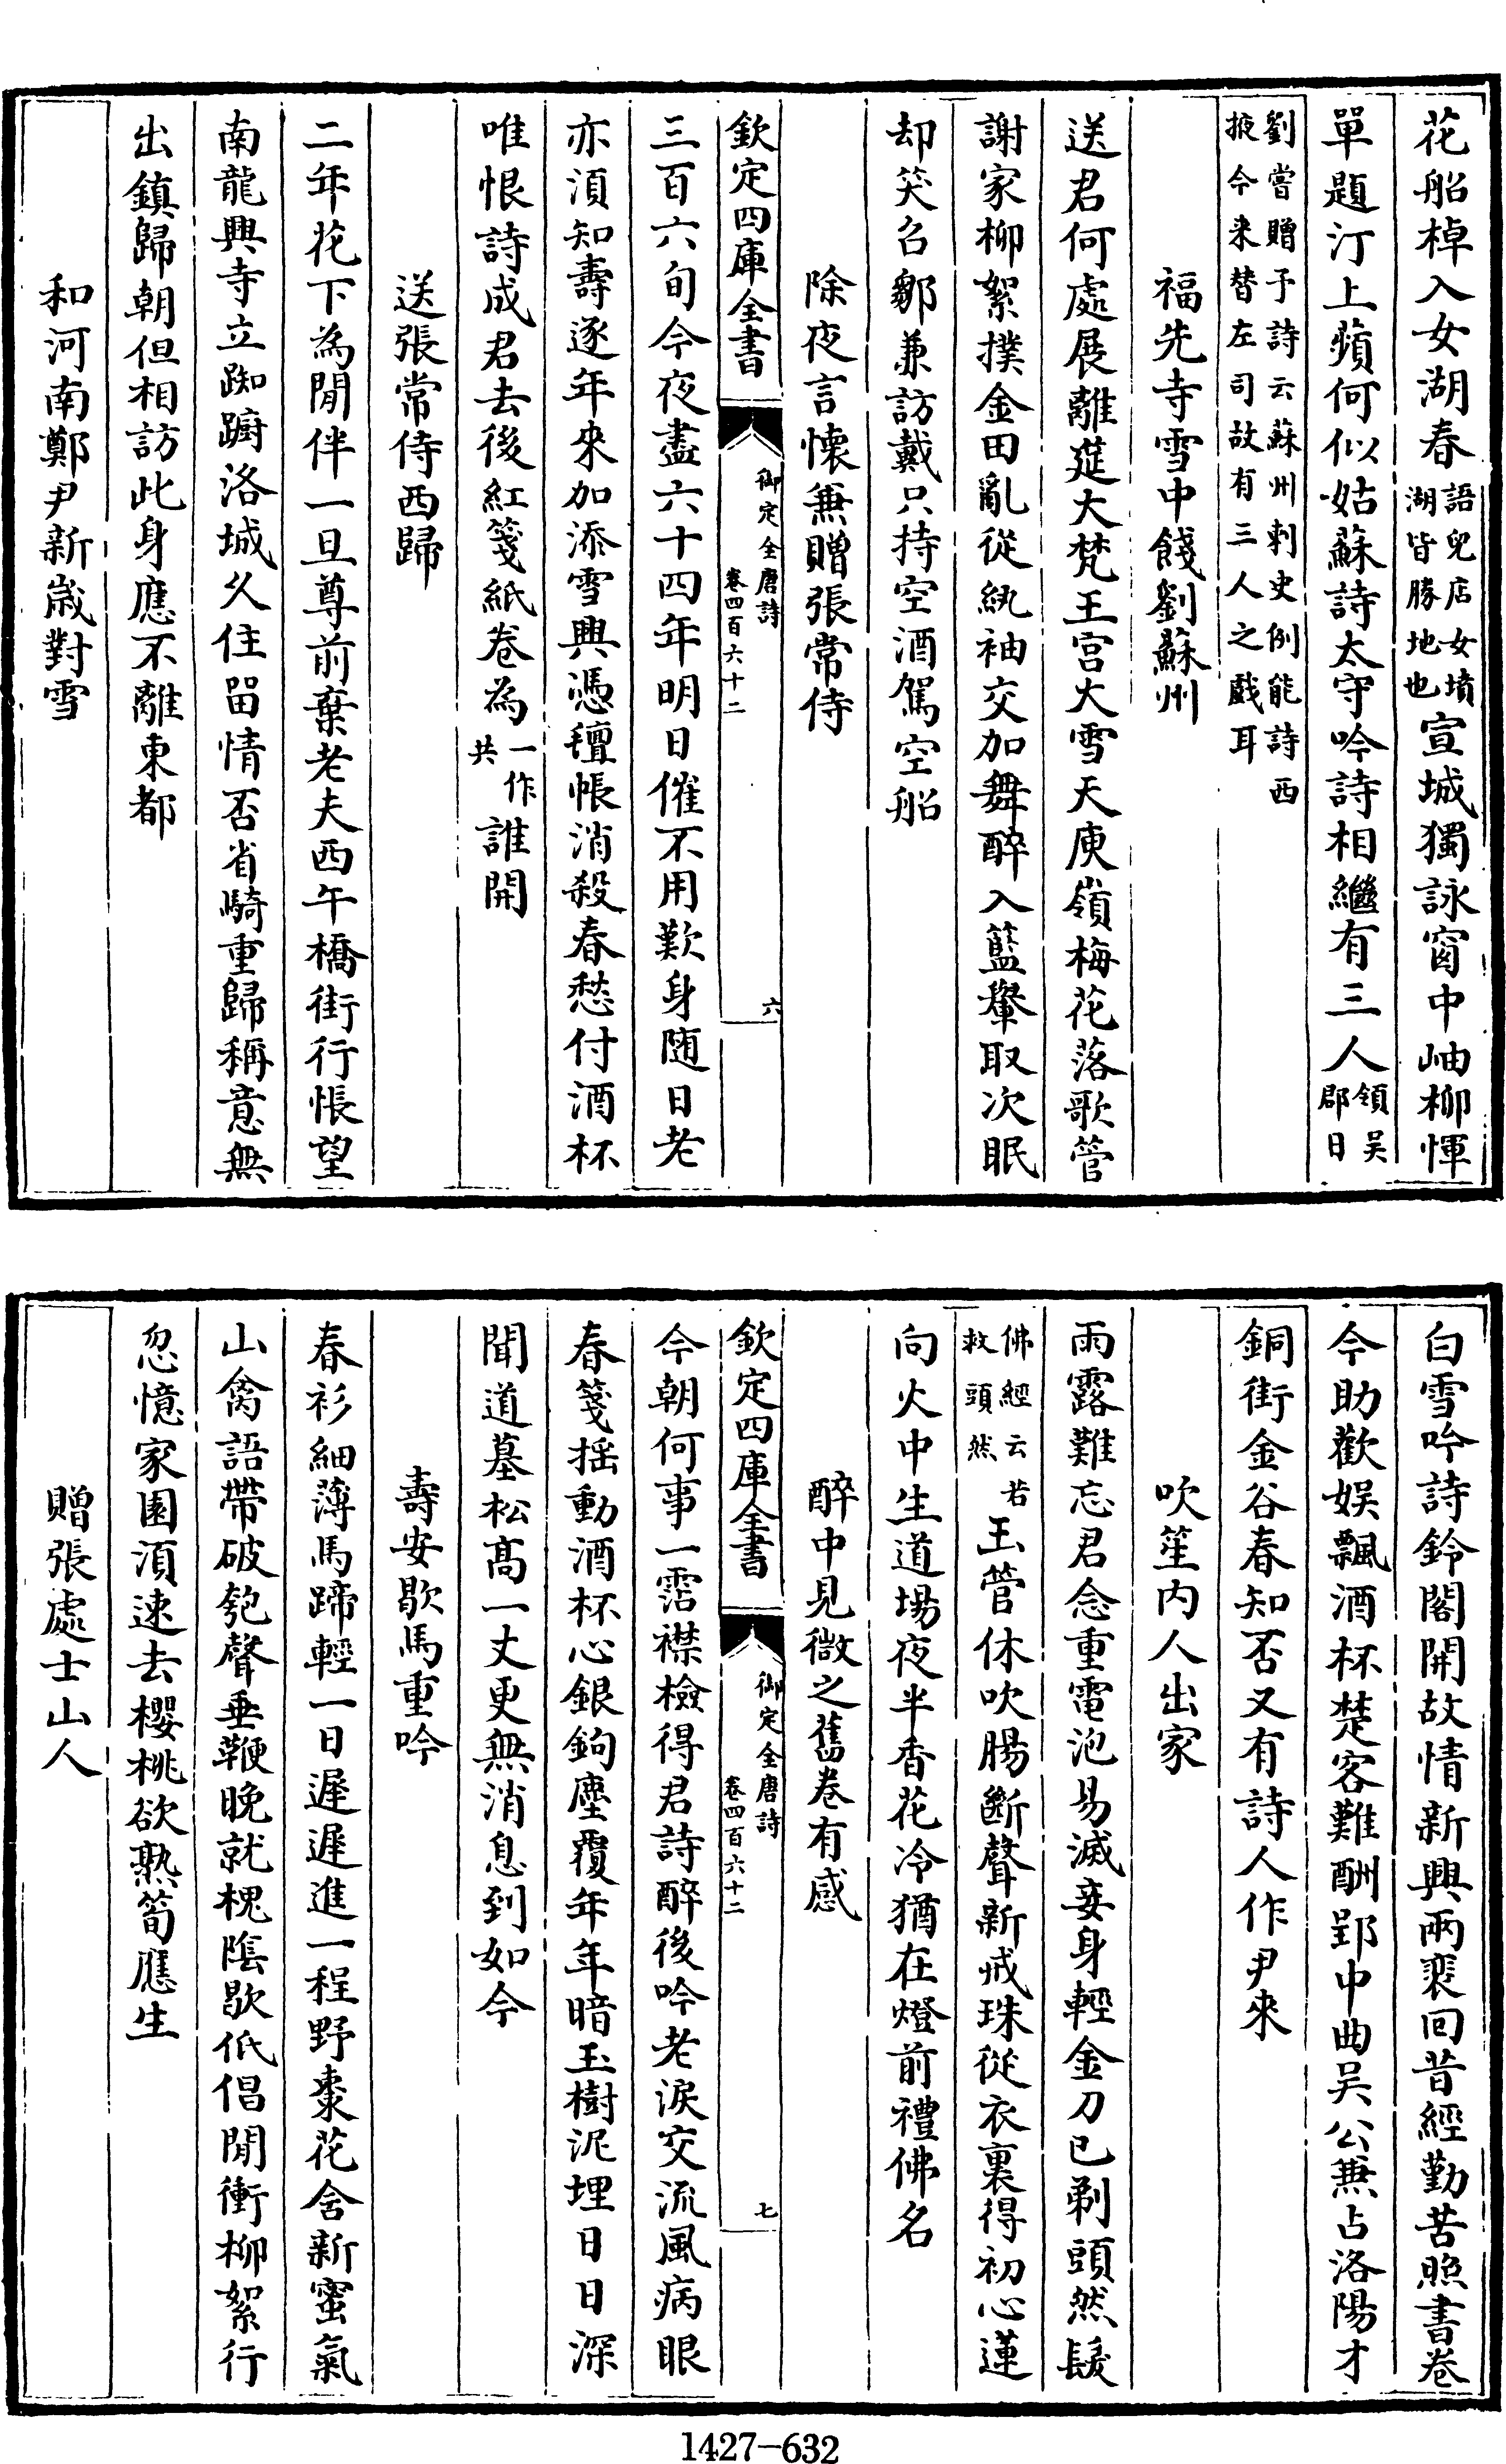 花船棹入女湖春語兒店女墳湖皆勝地也宣城獨詠窗中岫柳惲
單題汀上蘋何似姑蘇詩太守吟詩相繼有三人領吳郡日
劉嘗贈予詩云蘇州刺史例能詩西掖今來替左司故有三人之戲耳
福先寺雪中餞劉蘇州
送君何處展離筵大梵王宫大雪天庾嶺梅花落歌管
謝家柳絮撲金田亂從紈袖交加舞醉入籃轝取次眠
却笑召鄒兼訪戴只持空酒駕空船
除夜言懷兼贈張常侍
欽定四庫全書 御定全唐詩 卷四百六十二 六
三百六旬今夜盡六十四年明日催不用歎身随日老
亦須知壽逐年來加添雪興憑氊帳消殺春愁付酒杯
唯恨詩成君去後紅箋紙卷為一作共誰開
送張常侍西歸
二年花下為閒伴一旦尊前棄老夫西午橋街行悵望
南龍興寺立踟躕洛城久住留情否省騎重歸稱意無
出鎮歸朝但相訪此身應不離東都
和河南鄭尹新嵗對雪
白雪吟詩鈴閣開故情新興兩裴回昔經勤苦照書卷
今助歡娱飄酒杯楚客難酬郢中曲吴公兼占洛陽才
銅街金谷春知否又有詩人作尹來
吹笙内人出家
雨露難忘君念重電泡易滅妾身輕金刀已剃頭然髮
佛經云若救頭然玉管休吹腸斷聲新戒珠從衣裏得初心蓮
向火中生道場夜半香花冷猶在燈前禮佛名
醉中見微之舊卷有感
欽定四庫全書 御定全唐詩 卷四百六十二 七
今朝何事一霑襟檢得君詩醉後吟老淚交流風病眼
春箋揺動酒杯心銀鉤塵覆年年暗玉樹泥埋日日深
聞道墓松高一丈更無消息到如今
壽安歇馬重吟
春衫細薄馬蹄輕一日遲遲進一程野棗花含新蜜氣
山禽語帶破匏聲垂鞭晚就槐隂歇低倡閒衝柳絮行
忽憶家園須速去櫻桃欲熟筍應生
贈張處士山人
1427-632